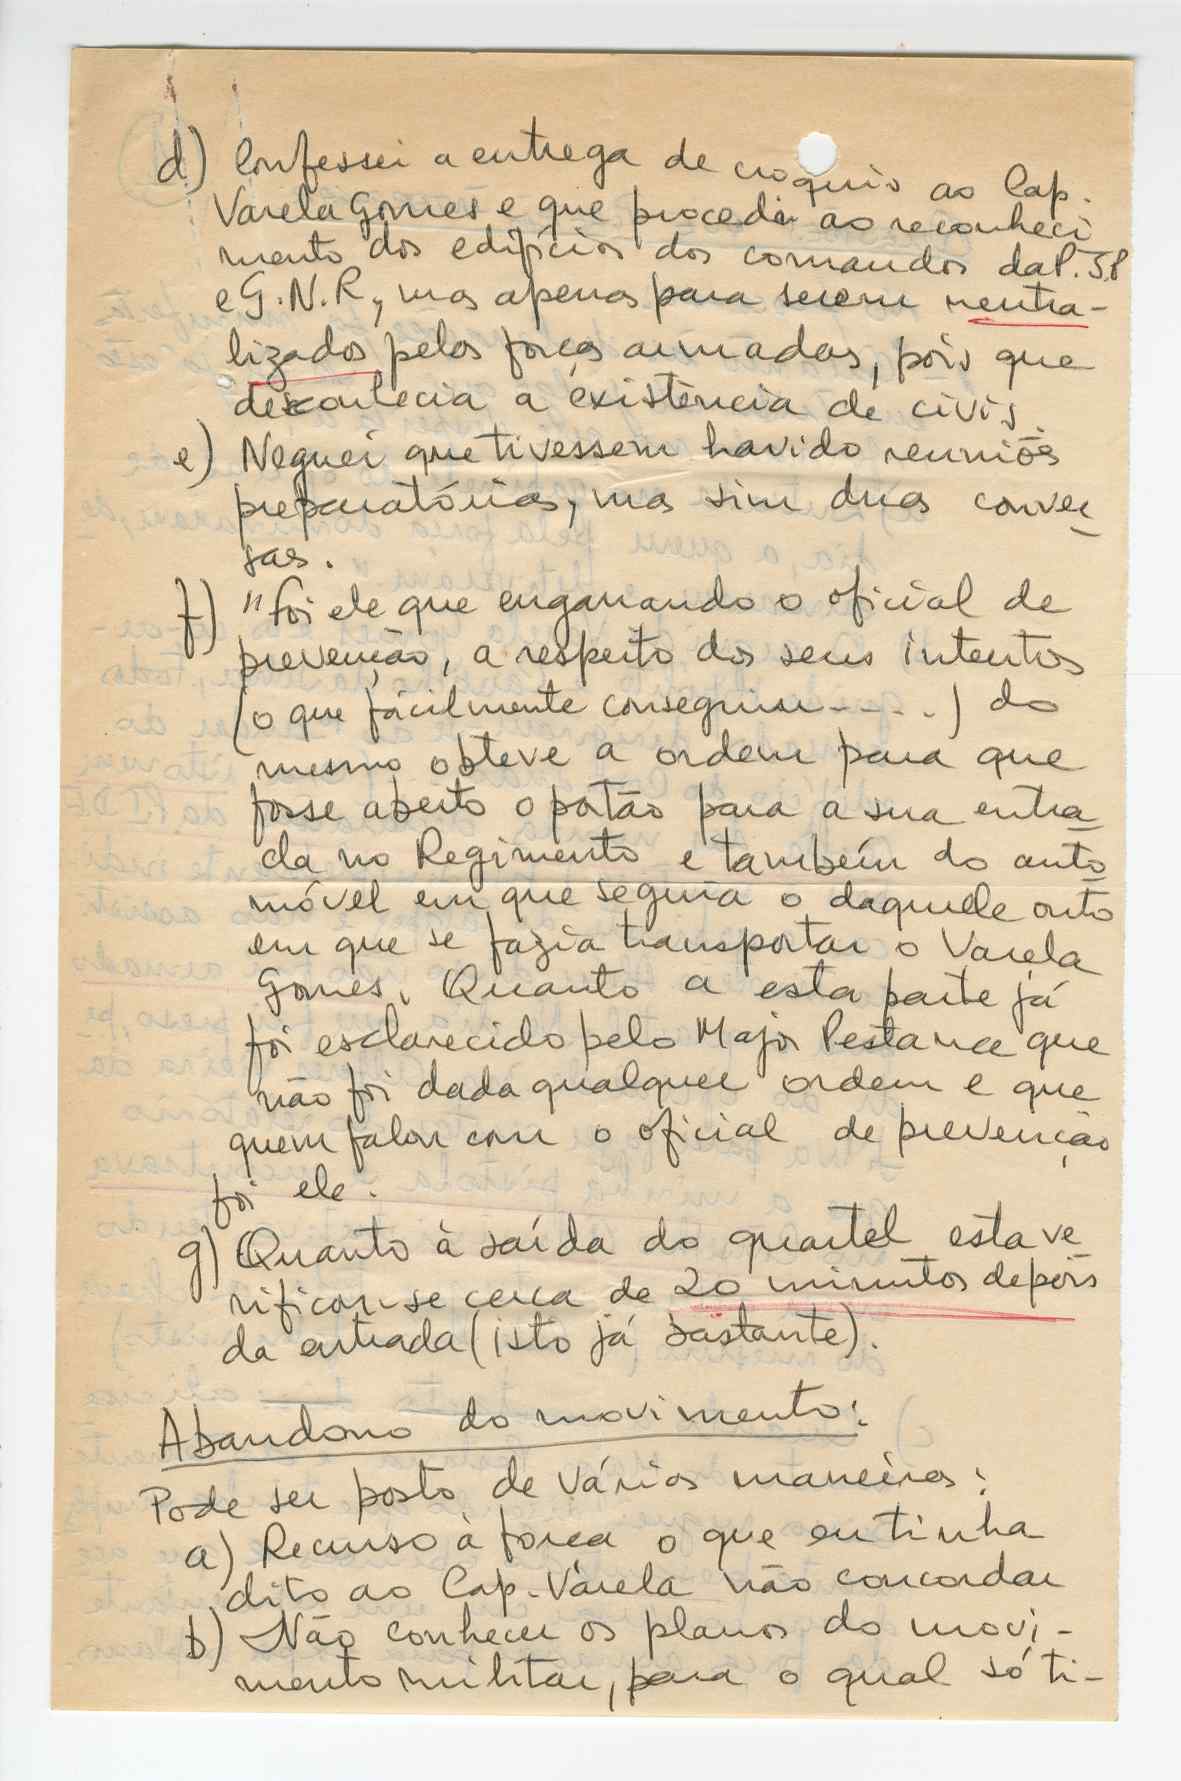 d) Confessei a entrega de croquis ao Cap.
Varela Gomes e que procedi ao reconheci
mento dos edifícios dos comandos da P.S.P
e G.N.R, mas apenas para serem neutra-
lizados pelas forças armadas, pois que
desconhecia a existência de civis.
e) Neguei que tivessem havido reuniões
preparatórias, mas sim duas conver
sas.
f) "foi ele que enganando o oficial de
prevenção, a respeito dos seus intentos
(o que fácilmente conseguiu - - . . ) do
mesmo obteve a ordem para que
fosse aberto o portão para a sua entra
da no Regimento e também do auto
móvel em que seguia o daquele outo
em que se fazia transportar o Varela
Gomes. Quanto a esta parte já
foi esclarecido pelo Major Pestana que
não foi dada qualquer ordem e que
quem falou com o oficial de prevenção
foi ele.
g) Quanto à saída do quartel esta ve
rificou-se cerca de 20 minutos depois
da entrada (isto já bastante).
Abandono do movimento:
Pode ser posto de várias maneiras:
a) Recurso à força o que eu tinha
dito ao Cap. Varela não concordar
b) Não conhecer os planos do movi-
mento militar, para o qual só ti-